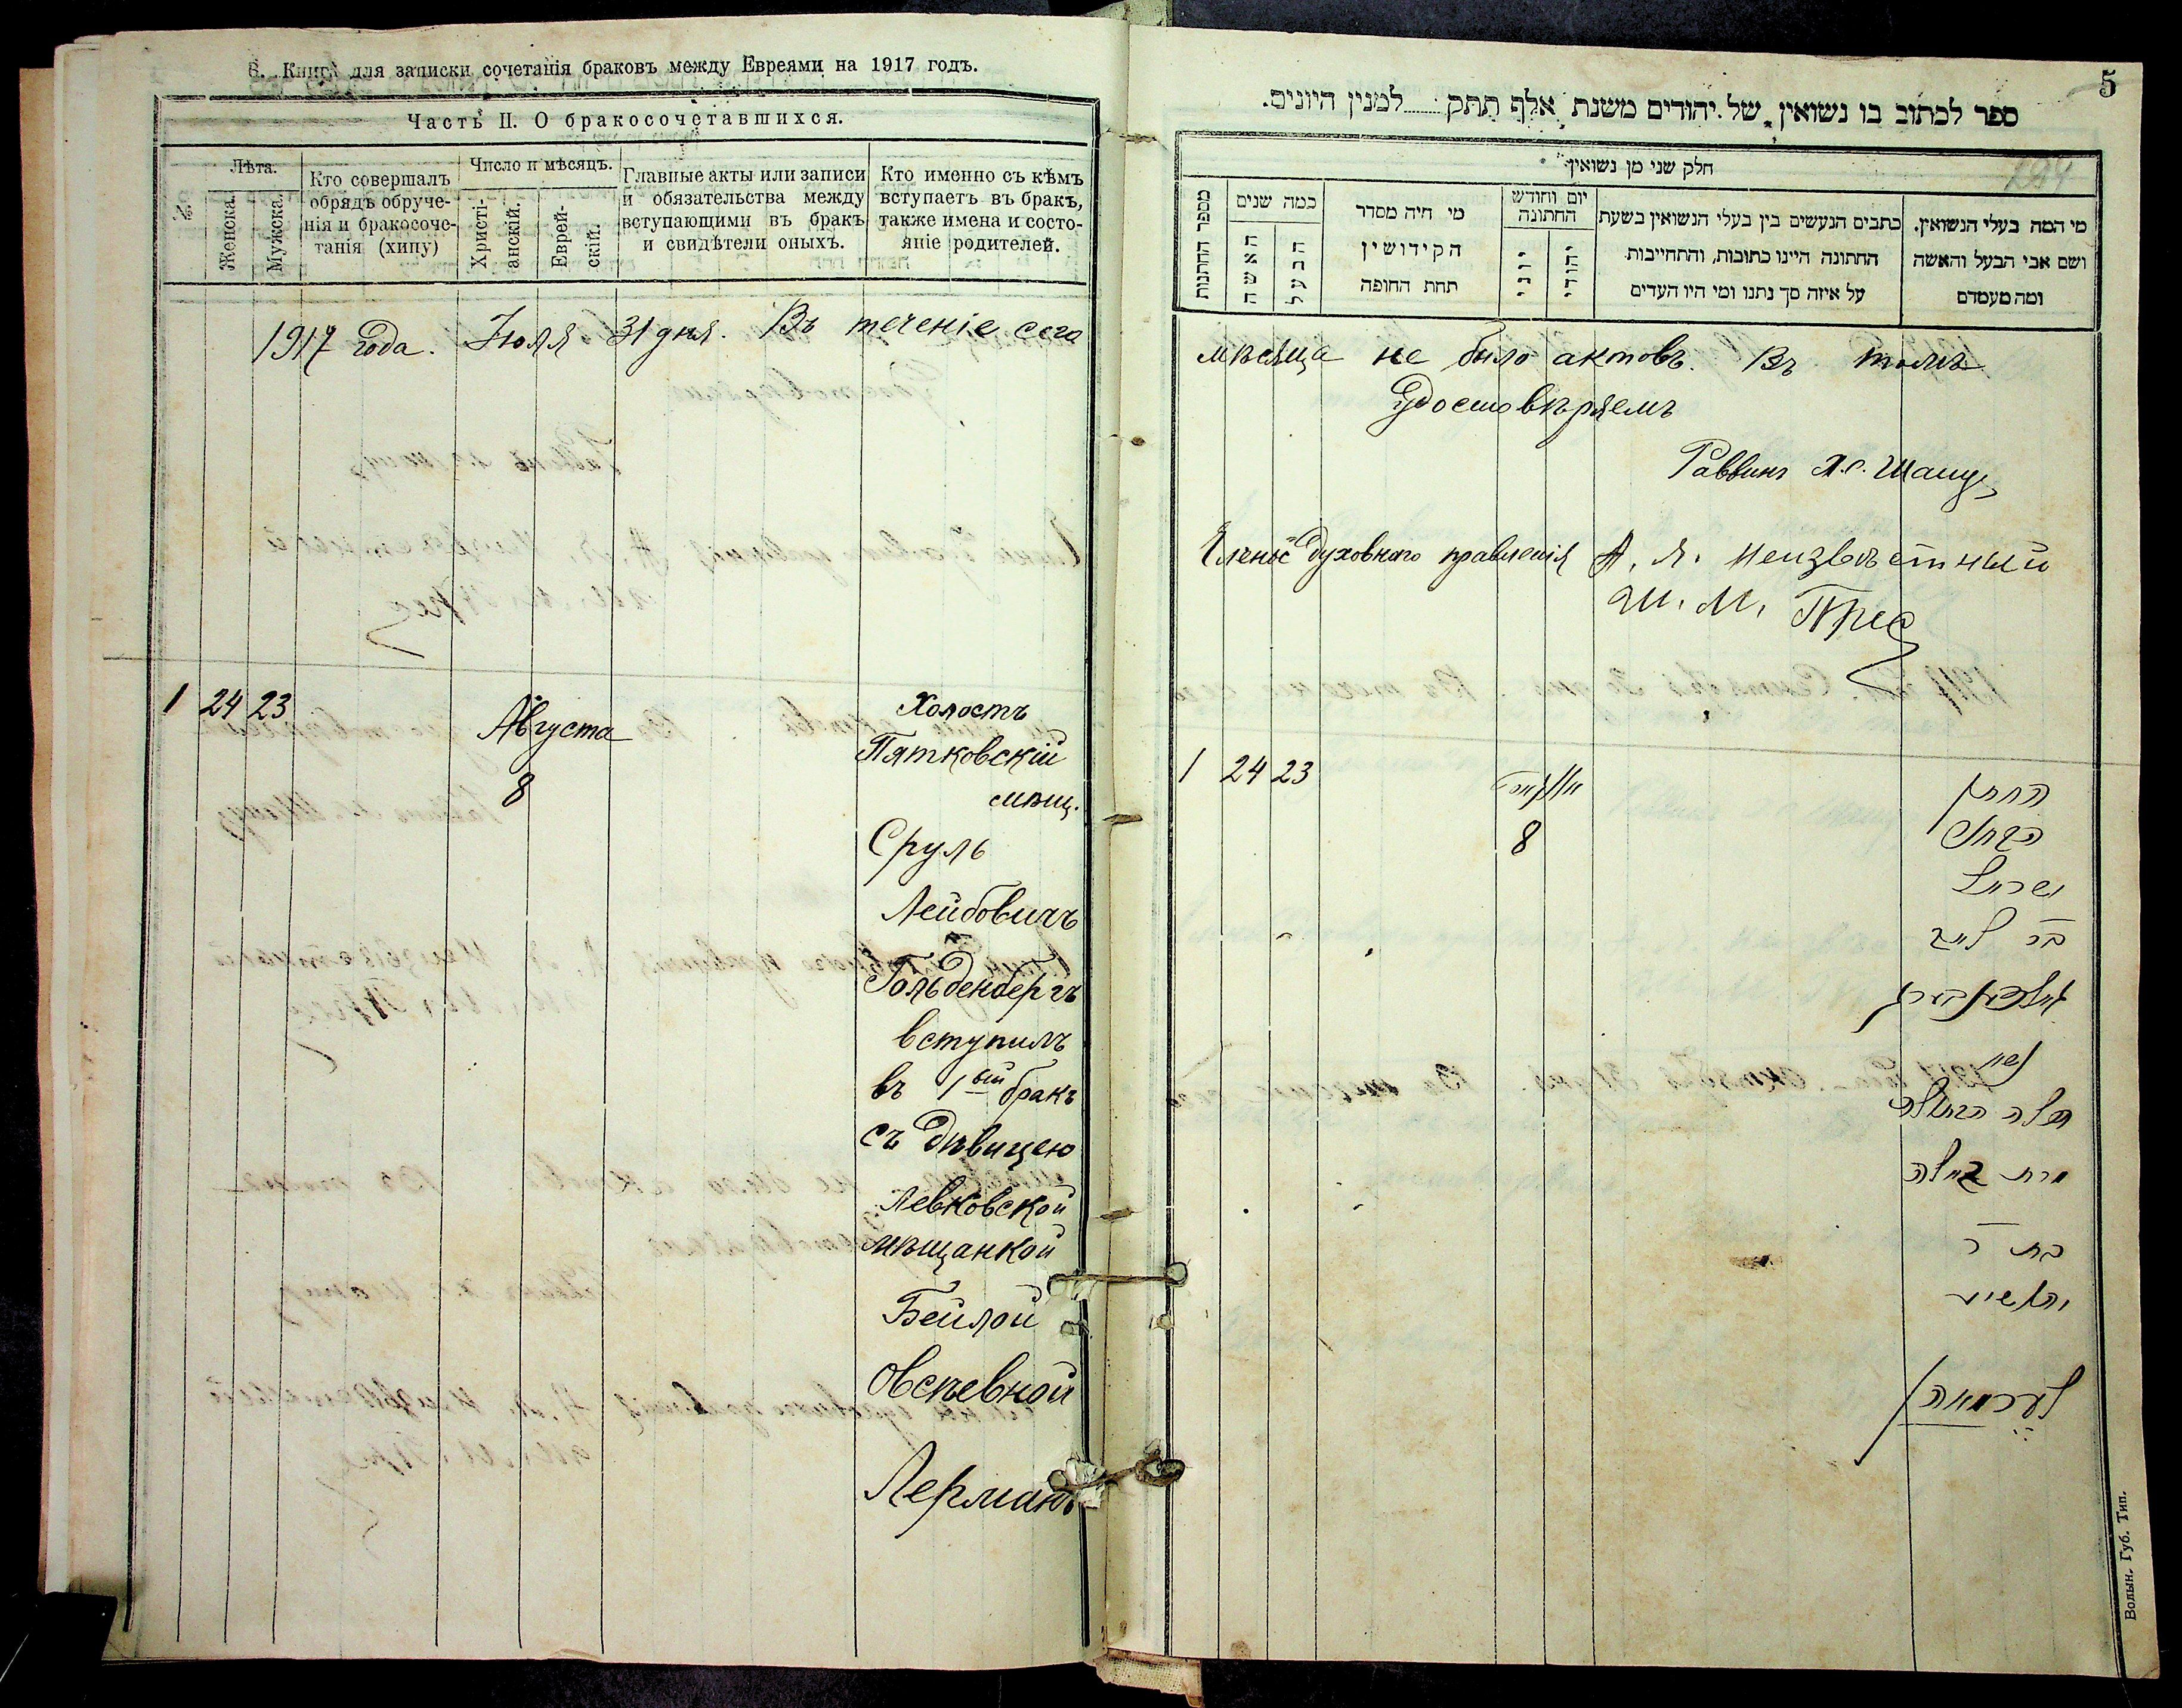 6. Книга для записки сочетанія браковъ между Евреями на 1917 годъ.
Часть II. О бракосочетавшихся.
№.
Лѣта.
Женска.
Мужска.
Кто совершалъ
обрядъ обруче-
нія и бракосоче-
танія (хипу)
Число и мѣсяцъ.
Христі-
анскій.
Еврей-
скій.
Главные акты или записи
и обязательства между
вступающими въ бракъ
и свидѣтели оныхъ.
Кто именно съ кѣмъ
вступаетъ въ бракъ,
также имена и состо-
яніе родителей.
1917 года. Іюля 31 дня. Въ теченіе сего
1 24 23
Августа
8
Холостъ
Пятковскій
мѣщ.
Сруль
Лейбовичъ
Гольденбергъ
вступилъ
въ 1ый бракъ
съ дѣвицею
Левковской
мѣщанкой
Бейлой
Овсѣевной
Лерманъ
5
ספר לכתוב בו נשואין של יהודים משנת אלף תתק למנין היונים.
חלק שני מן נשואין
מספר החתנות
כמה שנים
האשה
הבעל
מי היה מסדר
הקידושין
תחת החופה
יום וחודש
החתונה
יוני
יהודי
כתבים הנעשים בין בעלי הנשואין בשעת
החתונה היינו כתובות, והתחייבות
על איזה סך נתנו ומי היו העדים
מי המה בעלי הנשואין.
ושם אבי הבעל והאשה
ומה מעמדם
мѣсяца не было актовъ. Въ томъ
Удостовѣряемъ
Раввинъ
Члены духовнаго правленія А. Я. Неизвѣстный
Ш. М. Прес
1 24 23
8
החתן
הבחור
ישראל
בר לייב
גאלדענבערג
עם
הכלה הבתולה
מרת ביילה
בת ר
יהושיע
לערמאן
Волын. Губ. Тип.